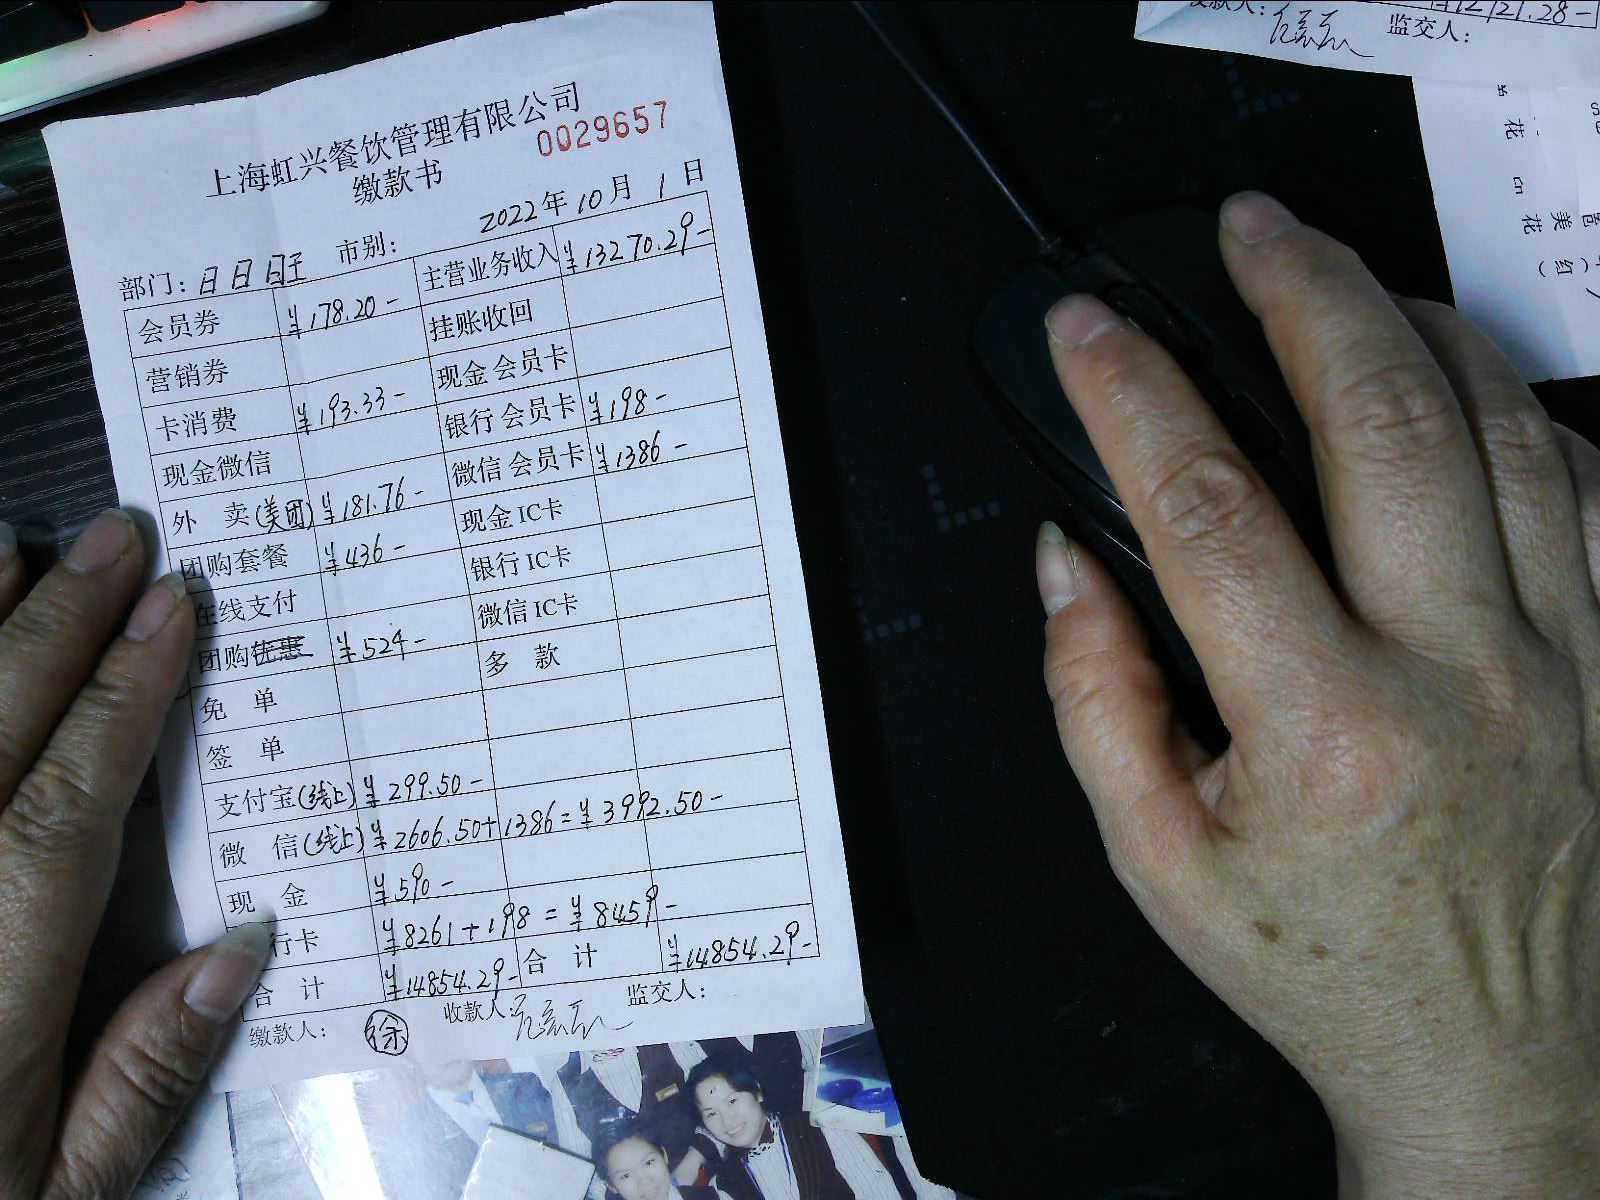 上海虹兴餐饮管理有限公司
缴款书
0029657
2022年10月1日
部门：日日旺 市别：
会员券 ¥178.20- 主营业务收入 ¥13270.29-
营销券 挂账收回
卡消费 ¥193.33- 现金会员卡
现金微信 银行会员卡 ¥198-
外 卖(美团) ¥181.76- 微信会员卡 ¥1386-
团购套餐 ¥436- 现金IC卡
在线支付 银行IC卡
团购优惠 ¥524- 微信IC卡
免 单 多 款
签 单
支付宝(线上) ¥299.50-
微 信(线上) ¥2606.50+1386=¥3992.50-
现 金 ¥590-
行卡 ¥8261+198=¥8459-
合 计 ¥14854.29- 合 计 ¥14854.29-
缴款人：徐 收款人： 监交人：
监交人：
121.28-
花
cn
美
花
红